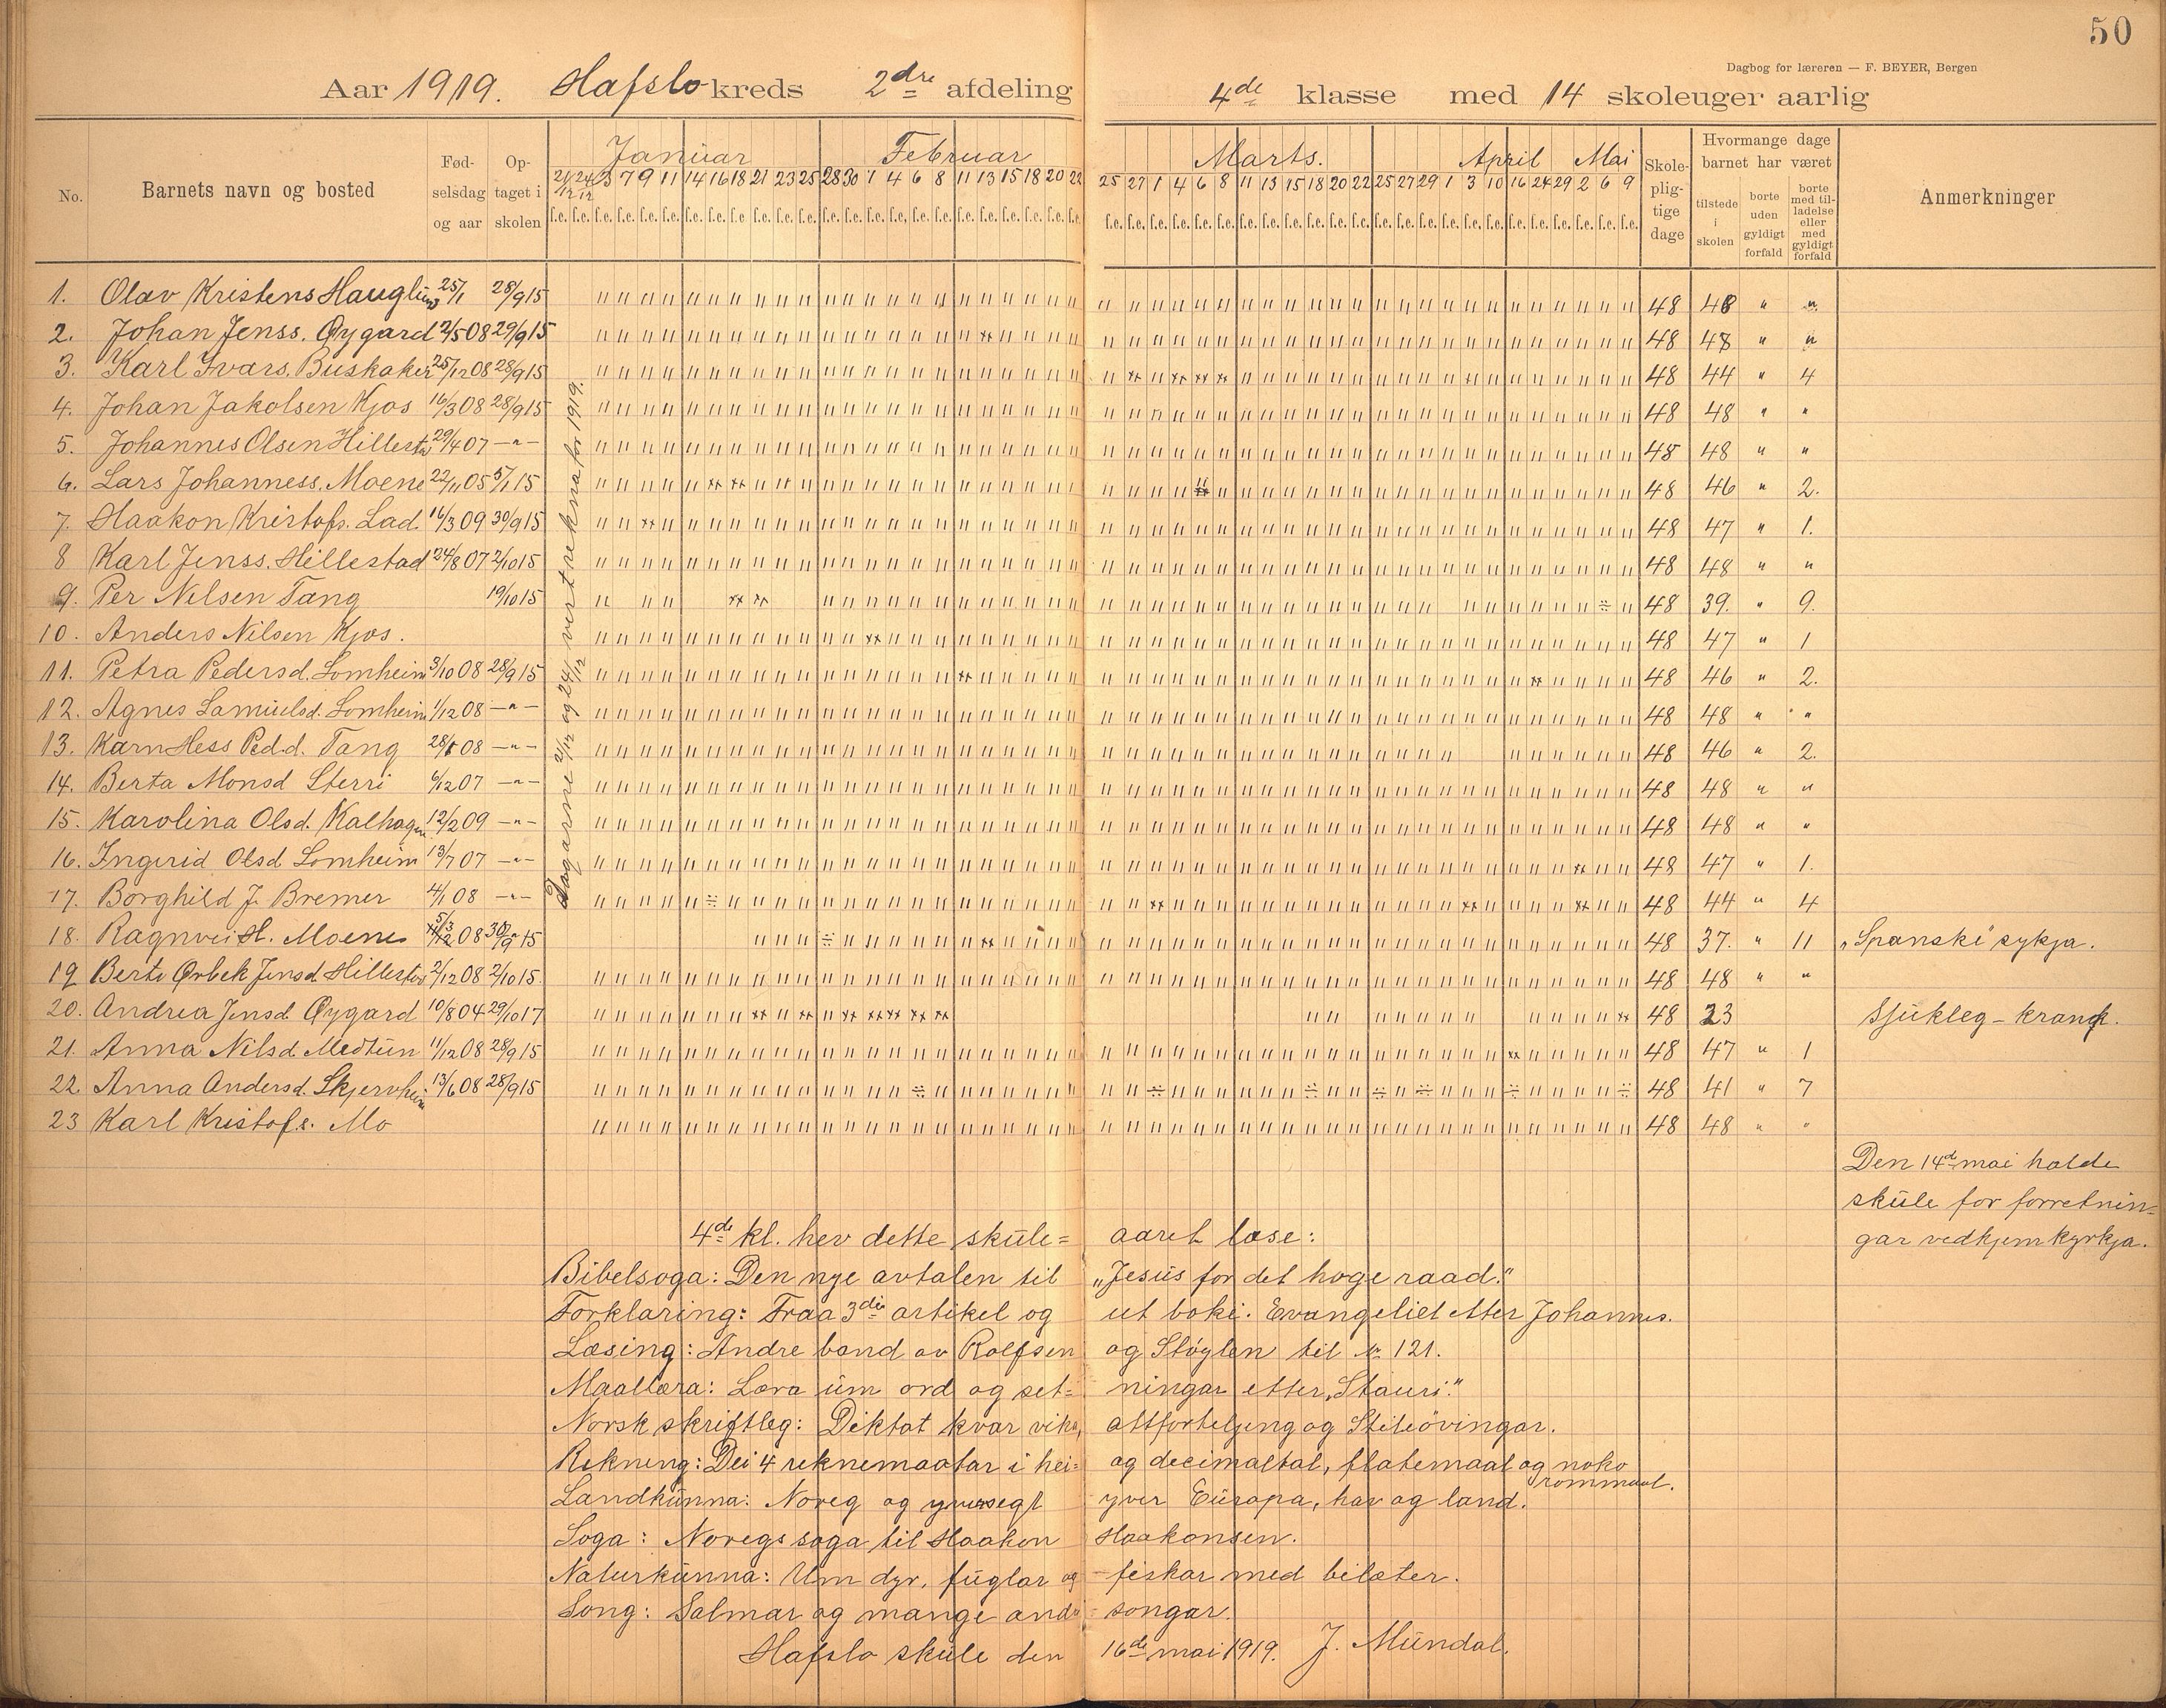 50
Dagbog for læreren — F. BEYER, Bergen
Aar 1919. Hafslo kreds 2dre afdeling 4de klasse med 14 skoleuger aarlig
No. Barnets navn og bosted Fødselsdag og aar Optaget i skolen Januar Februar Marts. April Mai Skolepligtige dage Hvormange dage barnet har været Anmerkninger
tilstede i skolen borte uden gyldigt forfald borte med tilladelse eller med gyldigt forfald
21/12 24/12 3 7 9 11 14 16 18 21 23 25 28 30 1 4 6 8 11 13 15 18 20 22 25 27 1 4 6 8 11 13 15 18 20 22 25 27 29 1 3 10 16 24 29 2 6 9
f.e. f.e. f.e. f.e. f.e. f.e. f.e. f.e. f.e. f.e. f.e. f.e. f.e. f.e. f.e. f.e. f.e. f.e. f.e. f.e. f.e. f.e. f.e. f.e. f.e. f.e. f.e. f.e. f.e. f.e. f.e. f.e. f.e. f.e. f.e. f.e. f.e. f.e. f.e. f.e. f.e. f.e. f.e. f.e. f.e. f.e. f.e. f.e.
Dagarne 21/12 og 24/12 vert rekna for 1919.
1. Olav Kristens Hauglum 25/1 28/9 15 48 48 " "
2. Johan Jenss. Øygard 2/5 08 29/9 15 48 48 " "
3. Karl Ivars. Buskaker 25/12 08 28/9 15 48 44 " 4
4. Johan Jakobsen Kjos 16/3 08 28/9 15 48 48 " "
5. Johannes Olsen Hillestad 29/4 07 —"— 48 48 " "
6. Lars Johanness. Moene 22/11 05 5/1 15 48 46 " 2.
7. Haakon Kristofs. Lad. 16/3 09 30/9 15 48 47 " 1.
8 Karl Jenss. Hillestad 24/8 07 2/10 15 48 48 " "
9. Per Nilsen Tang 19/10 15 48 39. " 9.
10. Anders Nilsen Kjos. 48 47 " 1
11. Petra Pedersd. Lomheim 3/10 08 28/9 15 48 46 " 2.
12. Agnes Samuelsd. Lomheim 1/12 08 —"— 48 48 " "
13. Karn Hess Ped.d. Tang 28/1 08 —"— 48 46 " 2.
14. Berta Monsd Sterri 6/12 07 —"— 48 48 " "
15. Karolina Olsd. Kalhagen 12/2 09 —"— 48 48 " "
16. Ingerid Olsd Lomheim 13/7 07 —"— 48 47 " 1.
17. Borghild J. Bremer 4/1 08 —"— 48 44 " 4
18. Ragnvei H. Moene 5/3 08 30/9 15 48 37. " 11 "Spanski" sykja.
19 Berte Ørbek Jensd Hillestad 2/12 08 2/10 15. 48 48 " "
20. Andrea Jensd. Øygard 10/8 04 29/10 17 48 23 Sjukleg - krank.
21. Anna Nilsd. Medtun 11/12 08 28/9 15 48 47 " 1
22. Anna Andersd. Skjervheim 13/6 08 28/9 15 48 41 " 7
23 Karl Kristofs. Mo 48 48 " "
Den 14de mai halde
skule for forretnin=
gar vedkjem kyrkja.
4de kl. hev dette skule= aaret læse:
Bibelsoga: Den nye avtalen til "Jesus for det høge raad."
Forklaring: Fraa 3die artikel og ut boki. Evangeliet etter Johannes.
Læsing: Andre band av Rolfsen og Støylen til № 121.
Maallæra: Læra um ord og set= ningar etter "Stauri."
Norsk skriftleg: Diktat kvar vike, attforteljing og Stiløvingar.
Rekning: Dei 4 reknemaatar i hei= og decimaltal, flatemaal og noko rommaal.
Landkunna: Noreg og yversegt yver Europa, hav og land.
Soga: Noregs soga til Haakon Haakonsen.
Naturkunna: Um dyr, fuglar og fiskar med bilæter.
Song: Salmar og mange andre songar.
Hafslo skule den 16de mai 1919. J. Mundal.